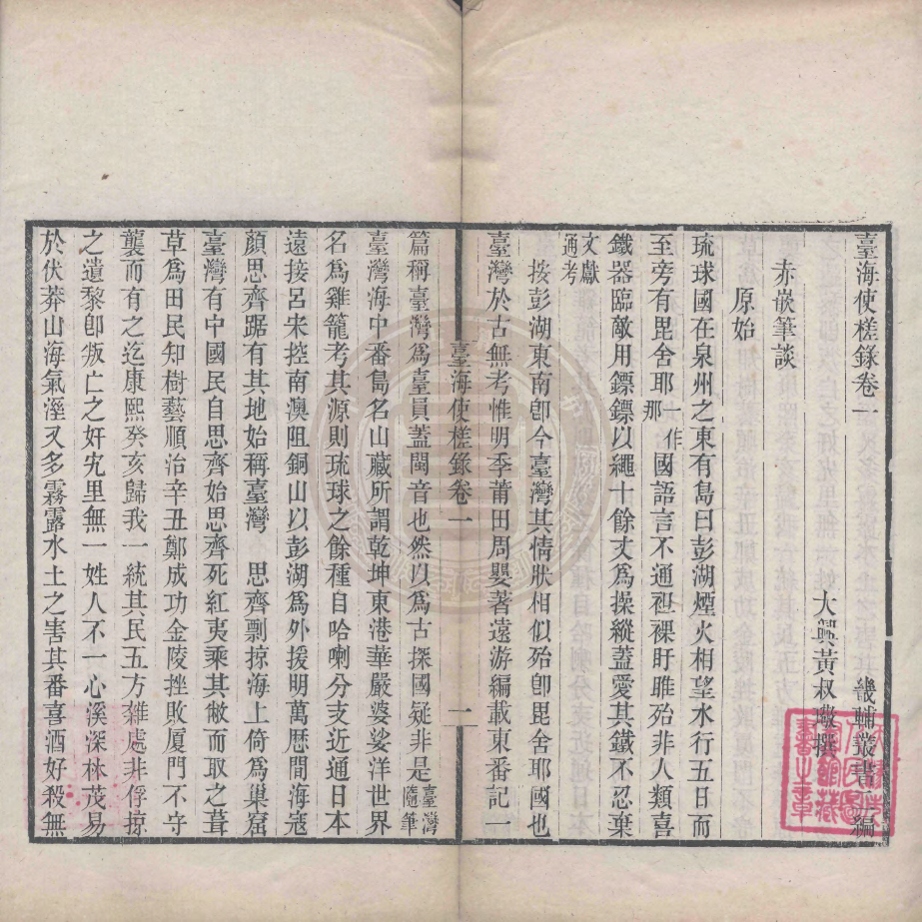 臺海使槎錄卷一
畿輔叢書二編
大興黃叔璥撰
赤嵌筆談
原始
琉球國在泉州之東有島曰彭湖煙火相望水行五日而
至旁有毘舍耶一作那國語言不通袒裸盱睢殆非人類喜
鐵器臨敵用鏢鏢以繩十餘丈爲操縱蓋愛其鐵不忍棄
文獻通考
按彭湖東南卽今臺灣其情狀相似殆卽毘舍耶國也
臺灣於古無考惟明季莆田周嬰著遠游編載東番記一
臺海使槎錄卷一
一
篇稱臺灣爲臺員蓋閩音也然以爲古探國疑非是臺灣隨筆
臺灣海中番島名山藏所謂乾坤東港華嚴婆娑洋世界
名爲雞籠考其源則琉球之餘種自哈喇分支近通日本
遠接呂宋控南澳阻銅山以彭湖爲外援明萬厯間海寇
顏思齊踞有其地始稱臺灣 思齊剽掠海上倚爲巢窟
臺灣有中國民自思齊始思齊死紅夷乘其敝而取之葺
草爲田民知樹藝順治辛丑鄭成功金陵挫敗厦門不守
襲而有之迄康熙癸亥歸我一統其民五方雜處非俘掠
之遺黎卽叛亡之奸宄里無一姓人不一心溪深林茂易
於伏莽山海氣溼又多霧露水土之害其番喜酒好殺無